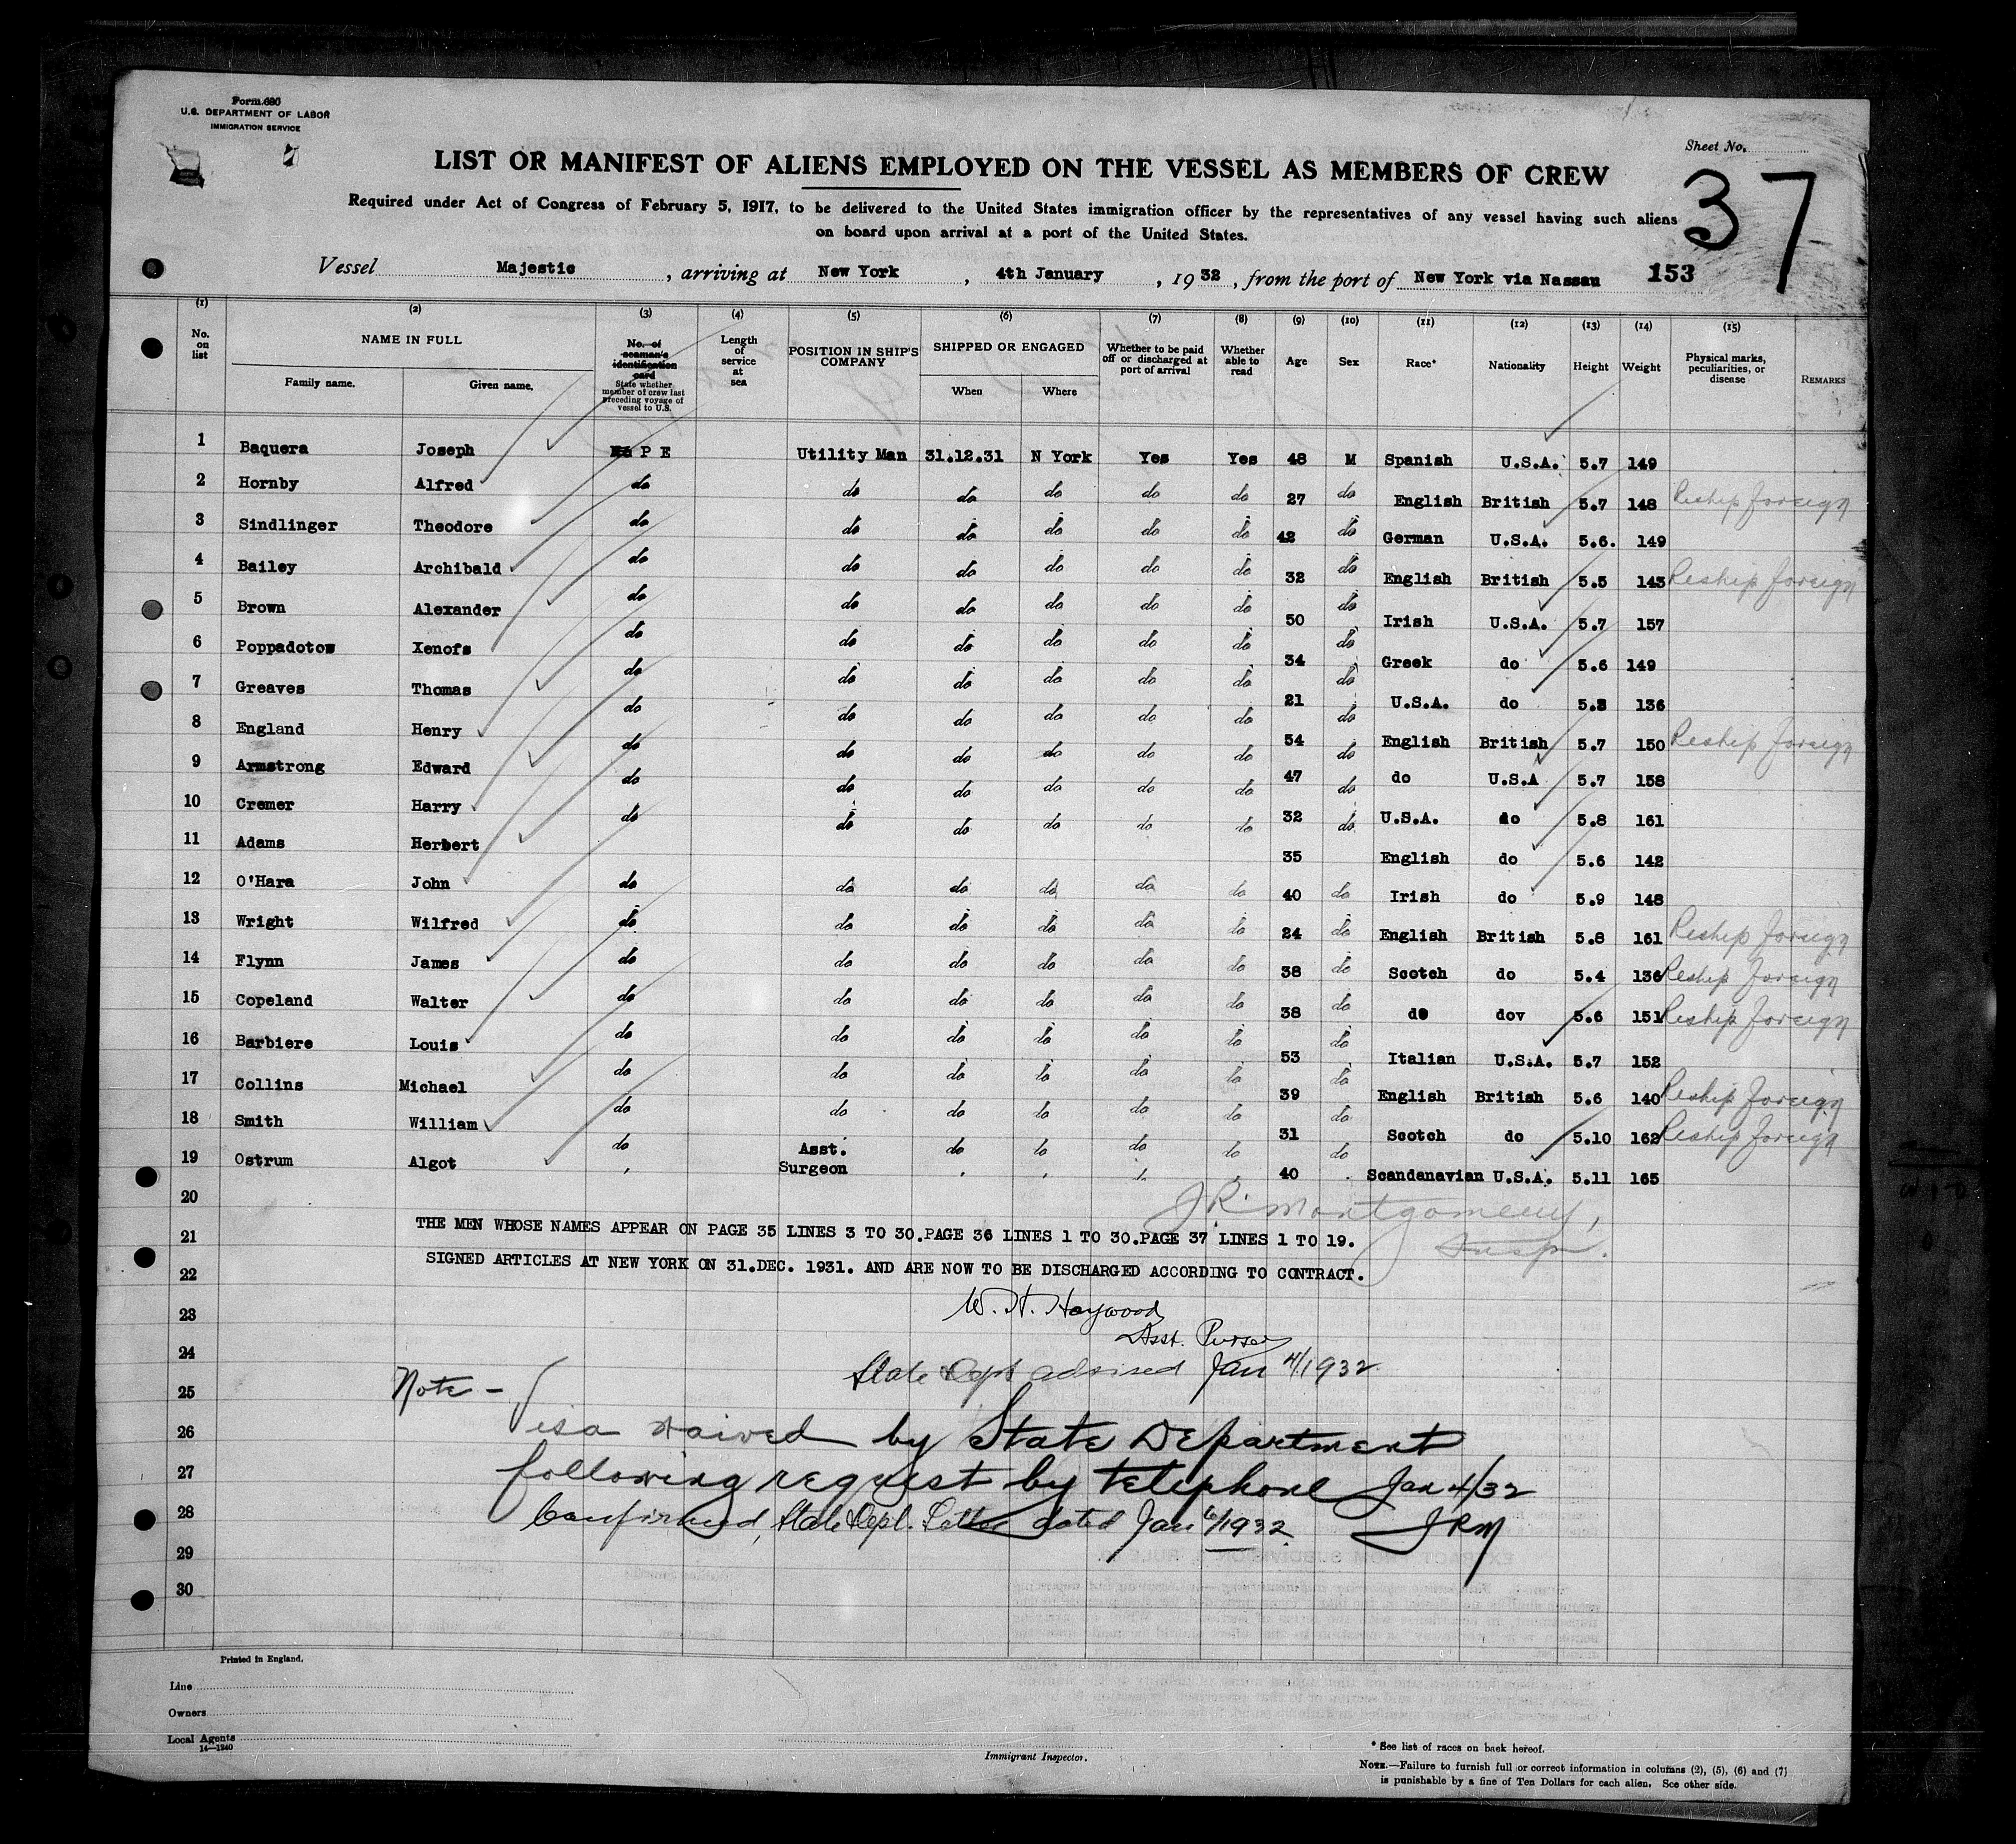 Form 680
U.S. DEPARTMENT OF LABOR
IMMIGRATION SERVICE
Sheet No.
37
LIST OR MANIFEST OF ALIENS EMPLOYED ON THE VESSEL AS MEMBERS OF CREW
Required under Act of Congress of February 5, 1917, to be delivered to the United States immigration officer by the representatives of any vessel having such aliens
on board upon arrival at a port of the United States.
Vessel Majestic, arriving at New York, 4th January, 1932, from the port of New York via Nassau 153
(1) (2) (3) (4) (5) (6) (7) (8) (9) (10) (11) (12) (13) (14) (15)
No. on list NAME IN FULL Family name. Given name. No. of seaman's identification card State whether member of crew last preceding voyage of vessel to U.S. Length of service at sea POSITION IN SHIP'S COMPANY SHIPPED OR ENGAGED When Where Whether to be paid off or discharged at port of arrival Whether able to read Age Sex Race* Nationality Height Weight Physical marks, peculiarities, or disease REMARKS
1 Baquera Joseph P E Utility Man 31.12.31 N York Yes Yes 48 M Spanish U.S.A. 5.7 149
2 Hornby Alfred do do do do do do 27 do English British 5.7 148 Reship foreign
3 Sindlinger Theodore do do do do do do 42 do German U.S.A. 5.6. 149
4 Bailey Archibald do do do do do do 32 do English British 5.5 143 Reship foreign
5 Brown Alexander do do do do do do 50 do Irish U.S.A. 5.7 157
6 Poppadotow Xenofs do do do do do do 34 do Greek do 5.6 149
7 Greaves Thomas do do do do do do 21 do U.S.A. do 5.8 136
8 England Henry do do do do do do 54 do English British 5.7 150 Reship foreign
9 Armstrong Edward do do do do do do 47 do do U.S.A 5.7 158
10 Cremer Harry do do do do do do 32 do U.S.A. do 5.8 161
11 Adams Herbert do do do do do do 35 do English do 5.6 142
12 O'Hara John do do do do do do 40 do Irish do 5.9 148
13 Wright Wilfred do do do do do do 24 do English British 5.8 161 Reship foreign
14 Flynn James do do do do do do 38 do Scotch do 5.4 136 Reship foreign
15 Copeland Walter do do do do do do 38 do do dov 5.6 151 Reship foreign
16 Barbiere Louis do do do do do do 53 do Italian U.S.A. 5.7 152
17 Collins Michael do do do do do do 39 do English British 5.6 140 Reship foreign
18 Smith William do do do do do do 31 do Scotch do 5.10 162 Reship foreign
19 Ostrum Algot do Asst. Surgeon do do do do 40 do Scandanavian U.S.A. 5.11 165
20
J R Montgomery,
Insp.
THE MEN WHOSE NAMES APPEAR ON PAGE 35 LINES 3 TO 30.PAGE 36 LINES 1 TO 30.PAGE 37 LINES 1 TO 19.
21
SIGNED ARTICLES AT NEW YORK ON 31.DEC. 1931. AND ARE NOW TO BE DISCHARGED ACCORDING TO CONTRACT.
22
23 W. H. Haywood
Asst. Purser
24 State Dept advised Jan 4/1932
25 Note -
26 Visa waived by State Department
27 following request by telephone Jan 4/32
28 Confirmed, State Dept. Letter dated Jan 6/1932 JRM
29
30
Printed in England.
Line
Owners
Local Agents
14—1240
Immigrant Inspector.
* See list of races on back hereof.
NOTE.—Failure to furnish full or correct information in columns (2), (5), (6) and (7)
is punishable by a fine of Ten Dollars for each alien. See other side.